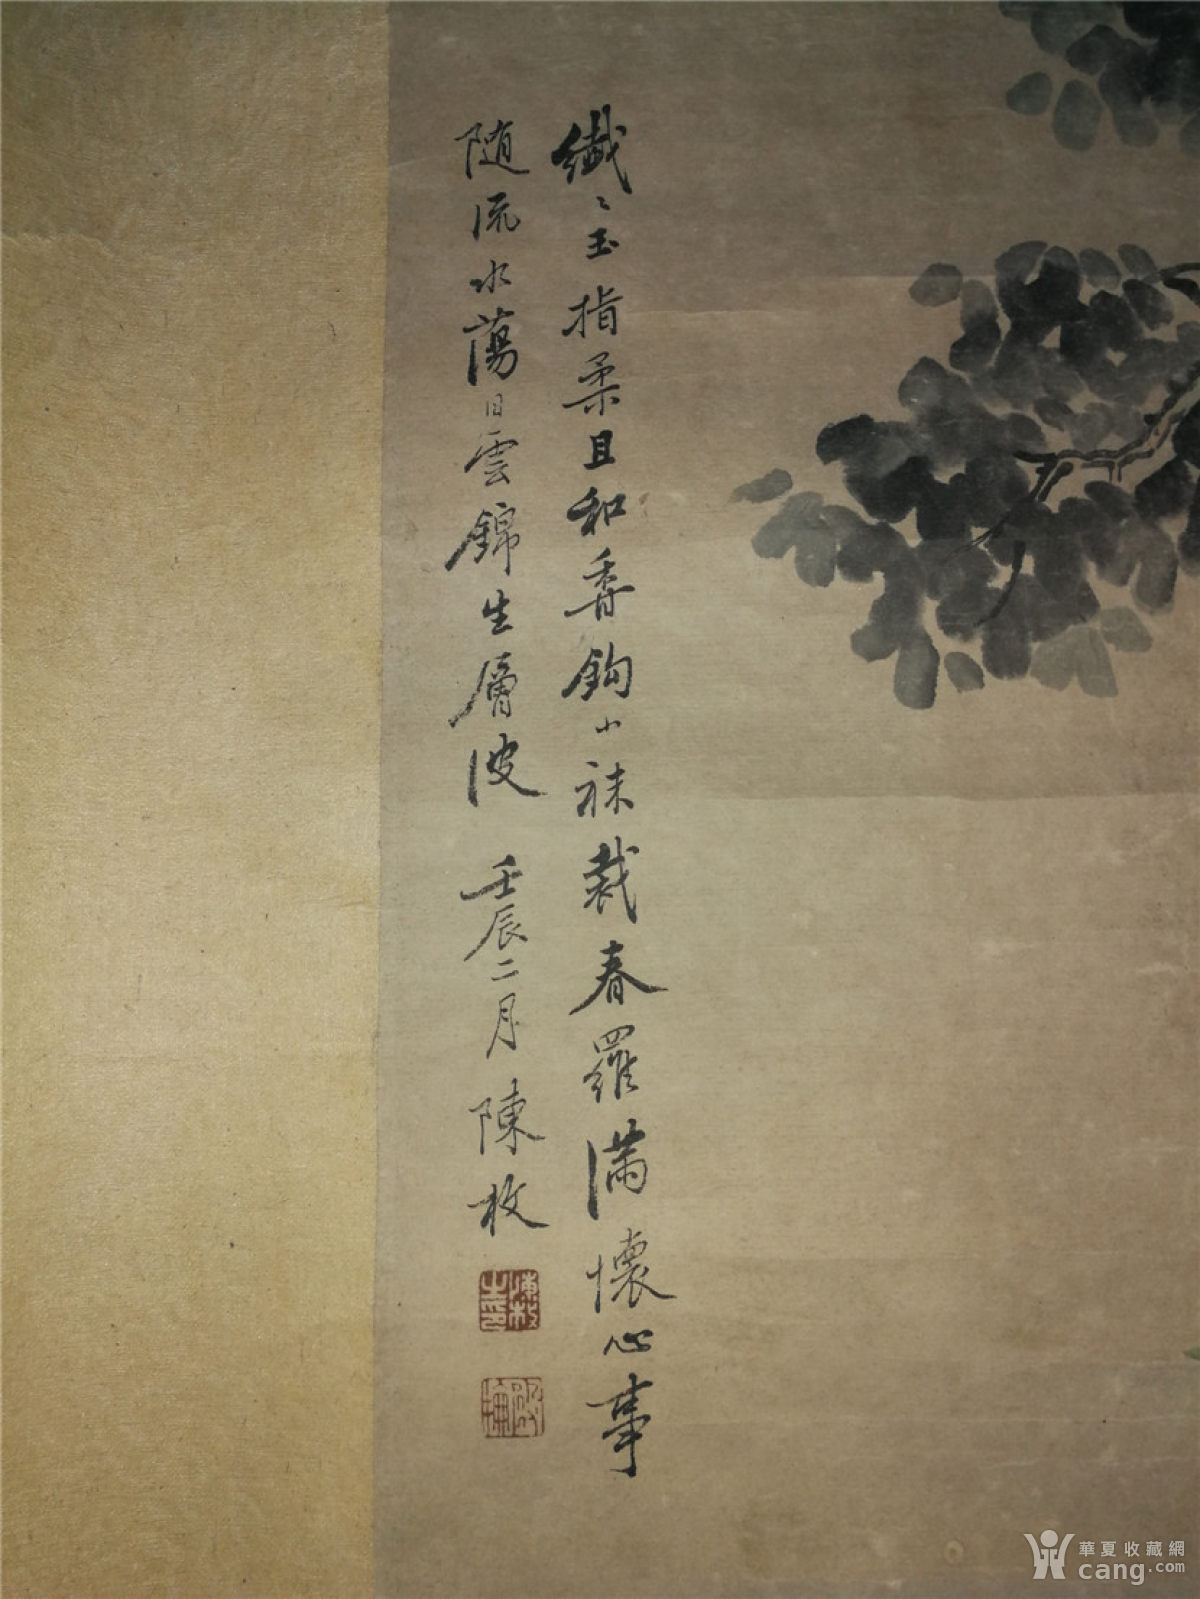 纖〻玉指柔且和香鈎小袜裁春羅滿懷心事
随流水蕩日雲錦生層波 壬辰二月陳枚
陳枚之印
華夏收藏網
cang.com